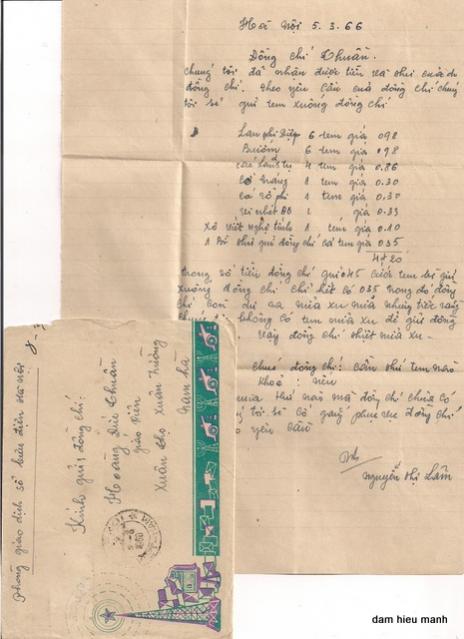 Hà Nội 5.3.66
Đồng chí Thuần.
chúng tôi đã nhận được tiền và thư của
đồng chí. theo yêu cầu của đồng chí chúng
tôi sẽ gửi tem xuống đồng chí
Lan phi Điệp 6 tem giá 098
Bướm 6 tem giá 098
4 tem giá 0.86
1 tem giá 0.30
1 tem giá 0.30
giá 0.33
Xô viết nghệ tĩnh 1 tem giá 0.10
1 Bì thư gửi đồng chí cả tem giá 035
4đ20
trong số tiền đồng chí gửi cước tem bì gửi
xuống đồng chí chỉ hết có 035 trong đó đồng
chí còn dư nửa xu nhưng tiếc rằng
không có tem nửa xu để gửi đồng
vậy đồng chí thiệt nửa xu.
chúc đồng chí: cần thứ tem nào
khoẻ: nếu
thứ nào mà đồng chí chưa có
tôi sẽ cố gắng phục vụ đồng chí
yêu cầu
Nguyễn thị Lâm
phòng giao dịch sở bưu điện Hà nội
Kính gửi đồng chí.
Hoàng Đức Thuần
giáo viên
Xuân thọ Xuân Trường
Nam hà
dam hieu manh